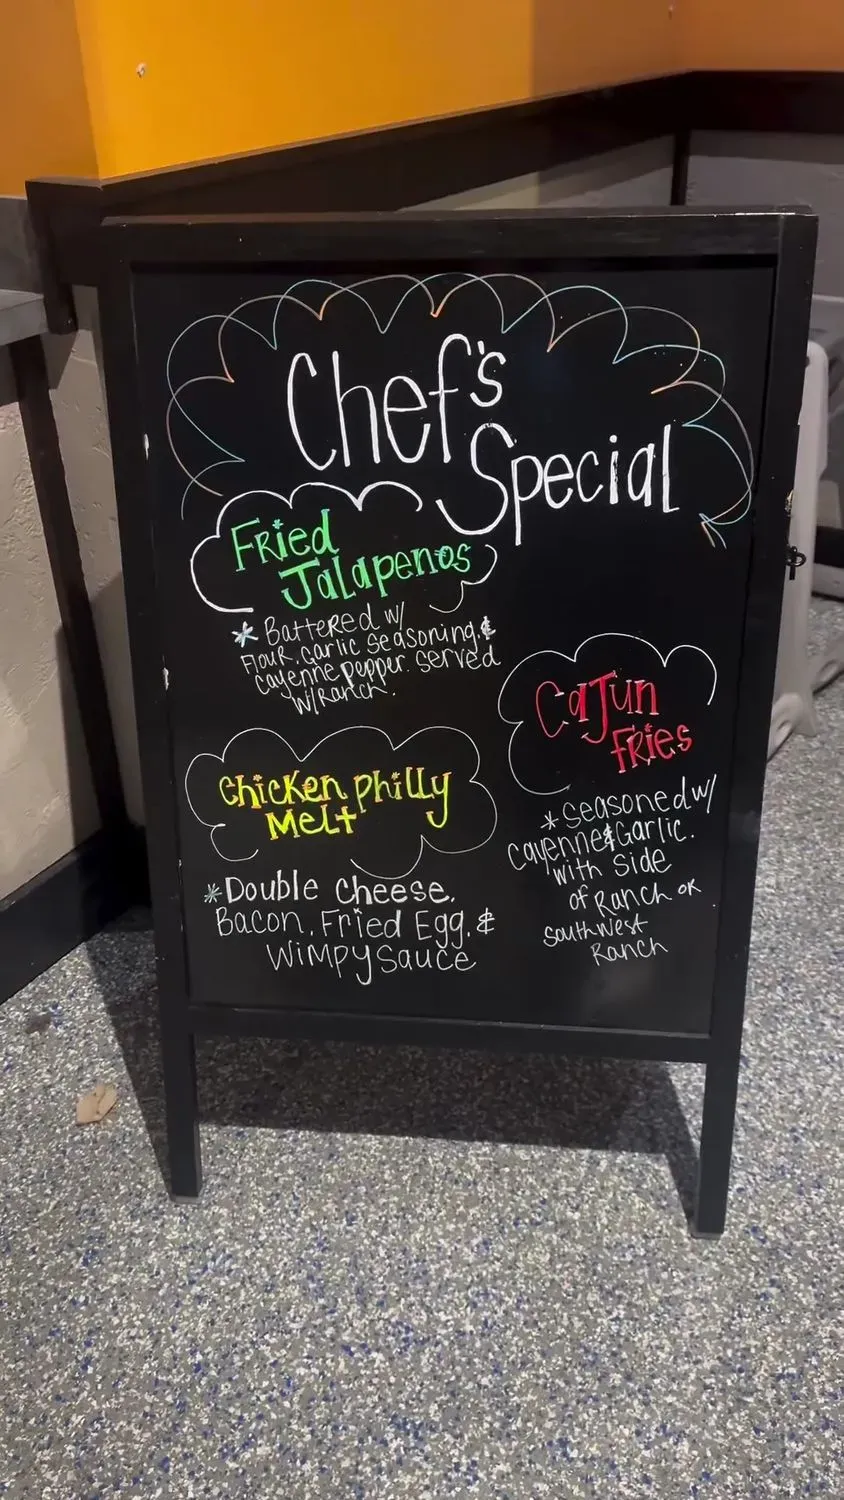 Chef's
Special
Fried
Jalapenos
* Battered w/
Flour, Garlic Seasoning, &
Cayenne pepper. Served
w/Ranch.
Chicken Philly
Melt
* Double Cheese,
Bacon, Fried Egg, &
Wimpy Sauce
Cajun
Fries
* Seasoned w/
Cayenne & Garlic.
with Side
of Ranch or
Southwest
Ranch